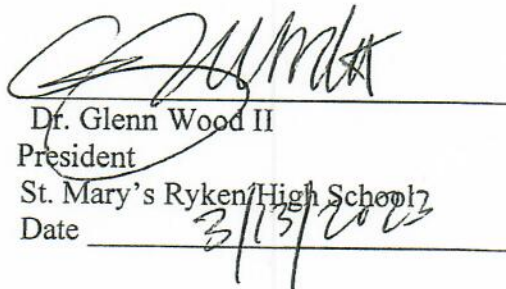 Dr. Glenn Wood II
President
St. Mary's Ryken High School
Date 3/13/2023